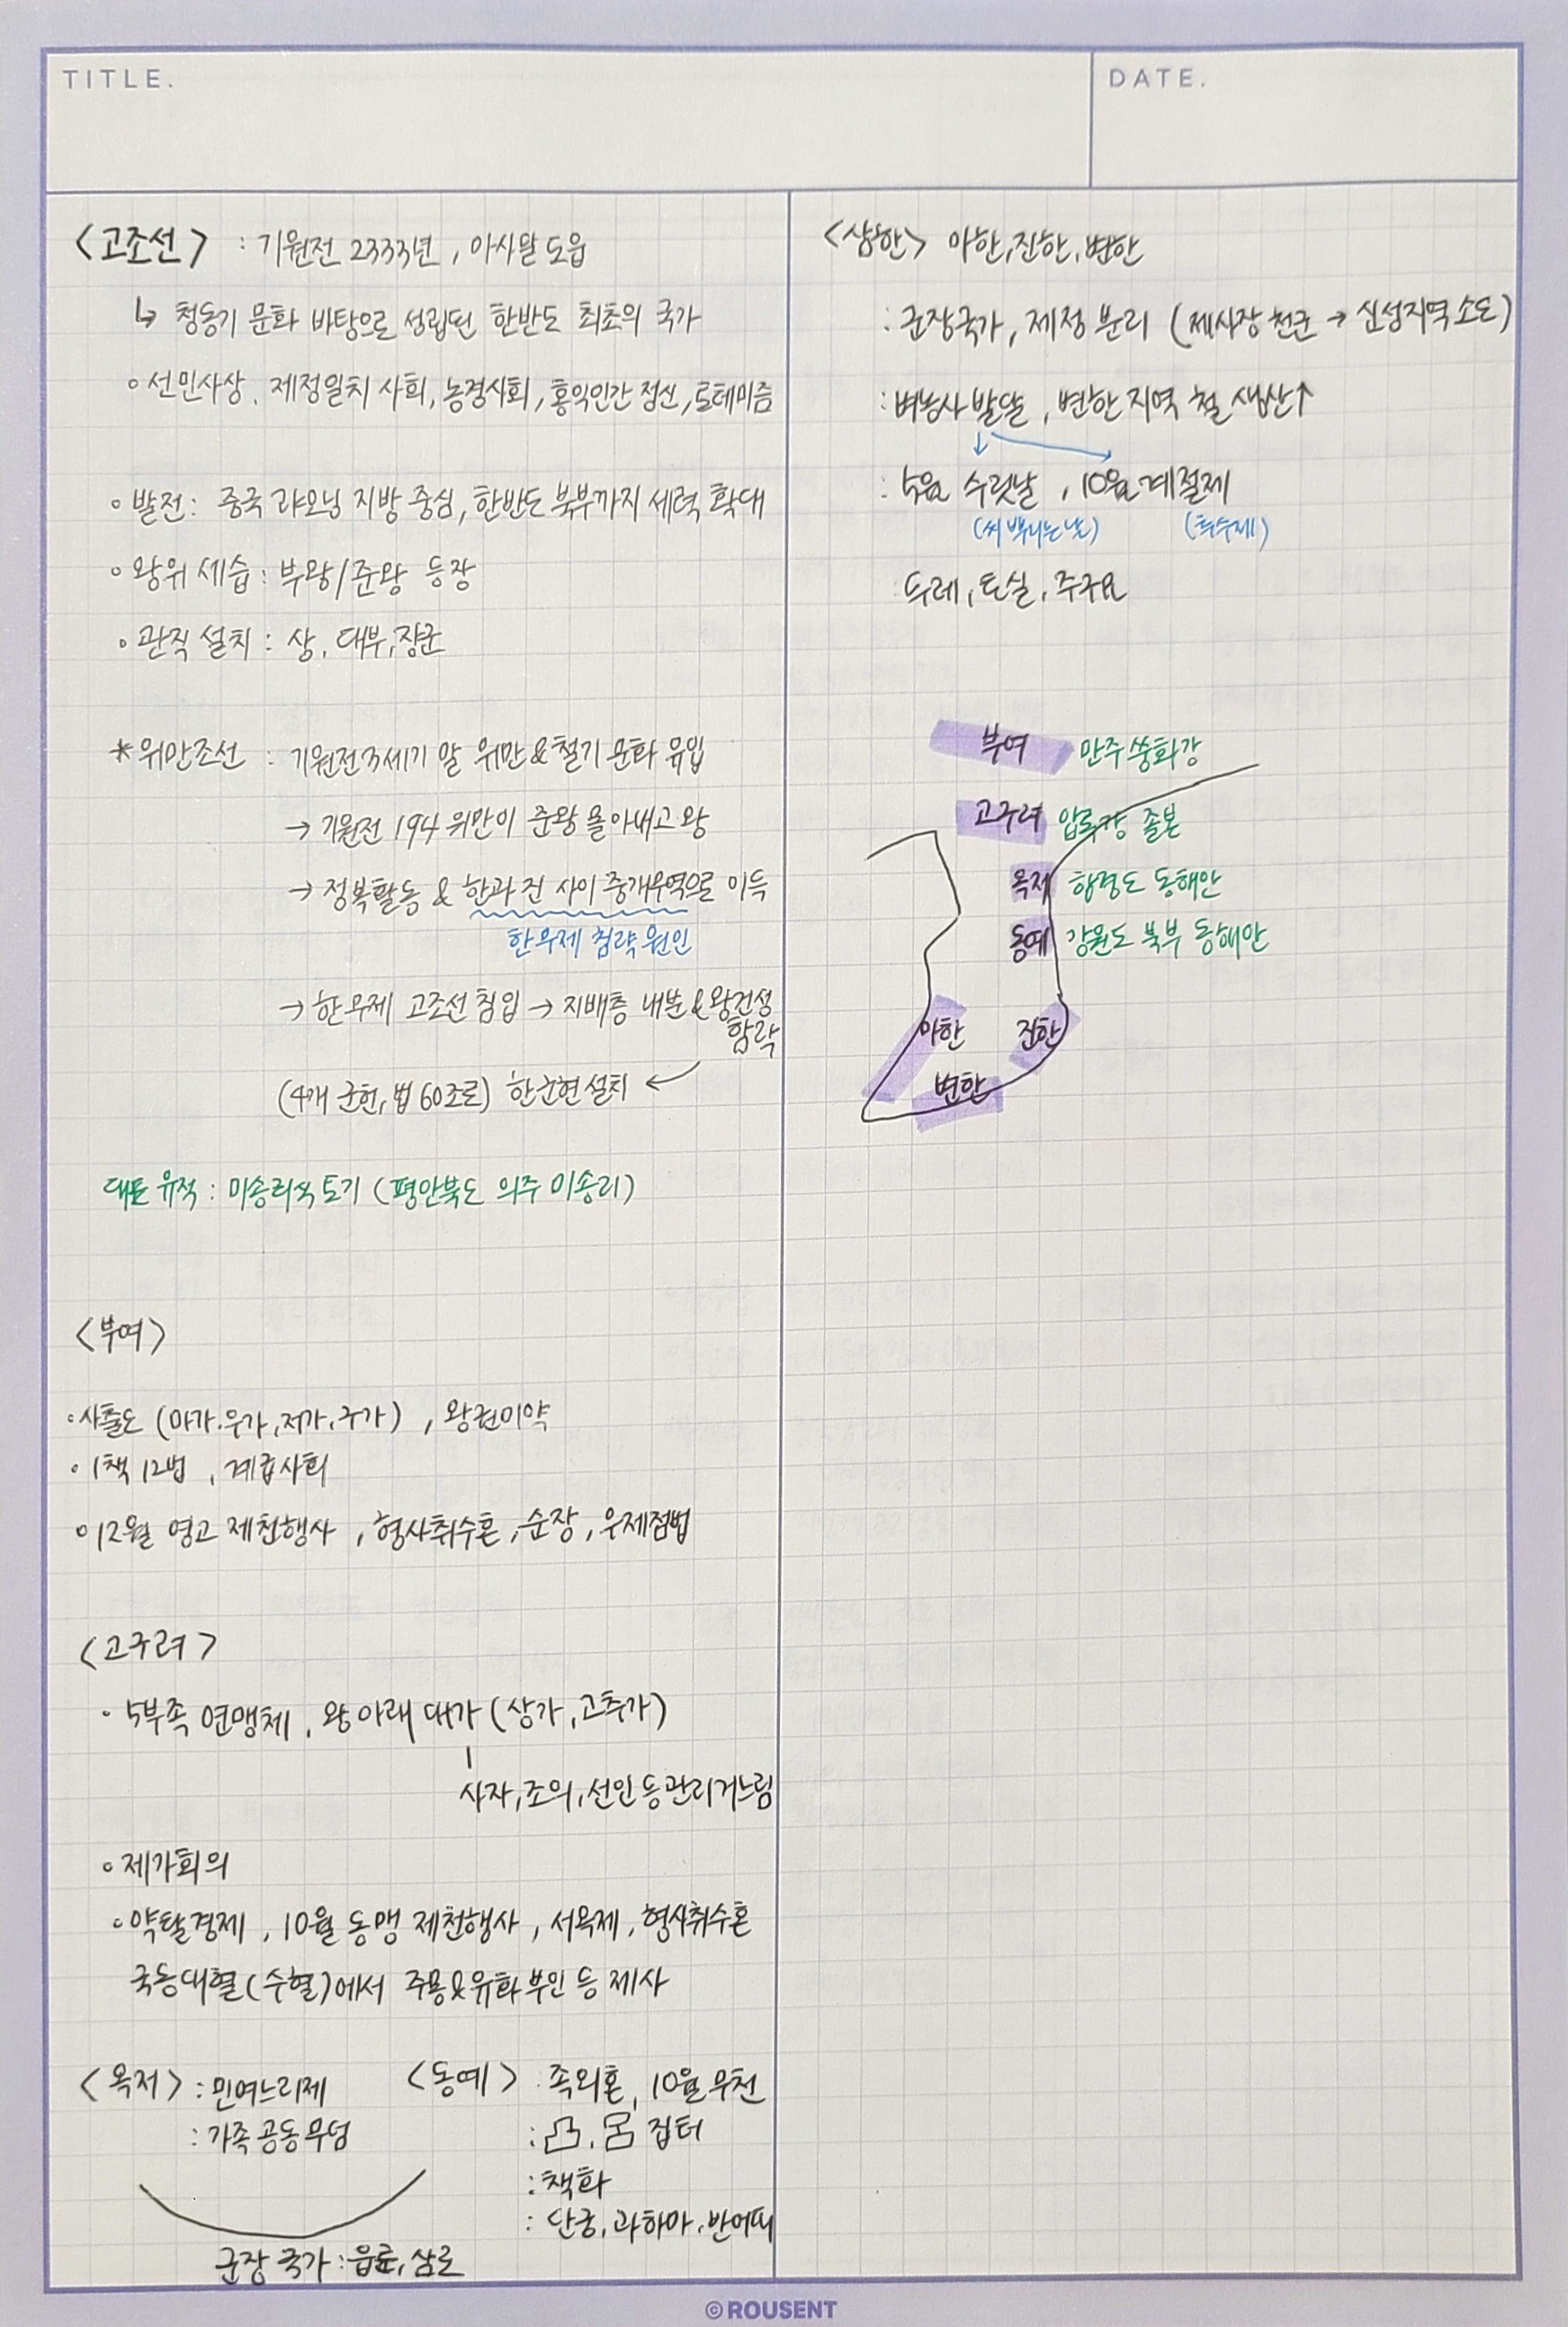 TITLE.
DATE.
<고조선> : 기원전 2333년, 아사달 도읍
↳ 청동기 문화 바탕으로 성립된 한반도 최초의 국가
◦ 선민사상, 제정일치 사회, 농경사회, 홍익인간 정신, 토테미즘
◦ 발전: 중국 랴오닝 지방 중심, 한반도 북부까지 세력 확대
◦ 왕위 세습: 부왕/준왕 등장
◦ 관직 설치: 상, 대부, 장군
*위만조선 : 기원전 3세기 말 위만&철기 문화 유입
→ 기원전 194 위만이 준왕 몰아내고 왕
→ 정복활동 & 한과 진 사이 중개무역으로 이득
한무제 침략 원인
→ 한무제 고조선 침입 → 지배층 내분 & 왕검성
함락
(4개 군현, 법 60조로) 한군현 설치 ↙
대표 유적 : 미송리식 토기 (평안북도 의주 미송리)
<부여>
◦사출도 (마가.우가,저가,구가), 왕권미약
◦ 1책 12법, 계급사회
◦12월 영고 제천행사, 형사취수혼, 순장, 우제점법
<고구려>
· 5부족 연맹체, 왕 아래 대가 (상가, 고추가)
사자, 조의, 선인 등 관리 거느림
◦ 제가회의
◦약탈경제, 10월 동맹 제천행사, 서옥제, 형사취수혼
국동대혈(수혈)에서 주몽&유화 부인 등 제사
<옥저> : 민며느리제
: 가족 공동 무덤
<동예> : 족외혼, 10월 무천
: 凸, 呂 집터
: 책화
: 단궁, 과하마, 반어피
군장 국가 : 읍군, 삼로
<삼한> 마한, 진한, 변한
: 군장국가, 제정 분리 (제사장 천군 → 신성지역 소도)
: 벼농사 발달, 변한 지역 철 생산↑
: 5월 수릿날, 10월 계절제
(씨 뿌리는 날) (추수제)
두레, 토실, 주구묘
부여 만주 쑹화강
고구려 압록강 졸본
옥저 함경도 동해안
동예 강원도 북부 동해안
마한 진한
변한
©ROUSENT